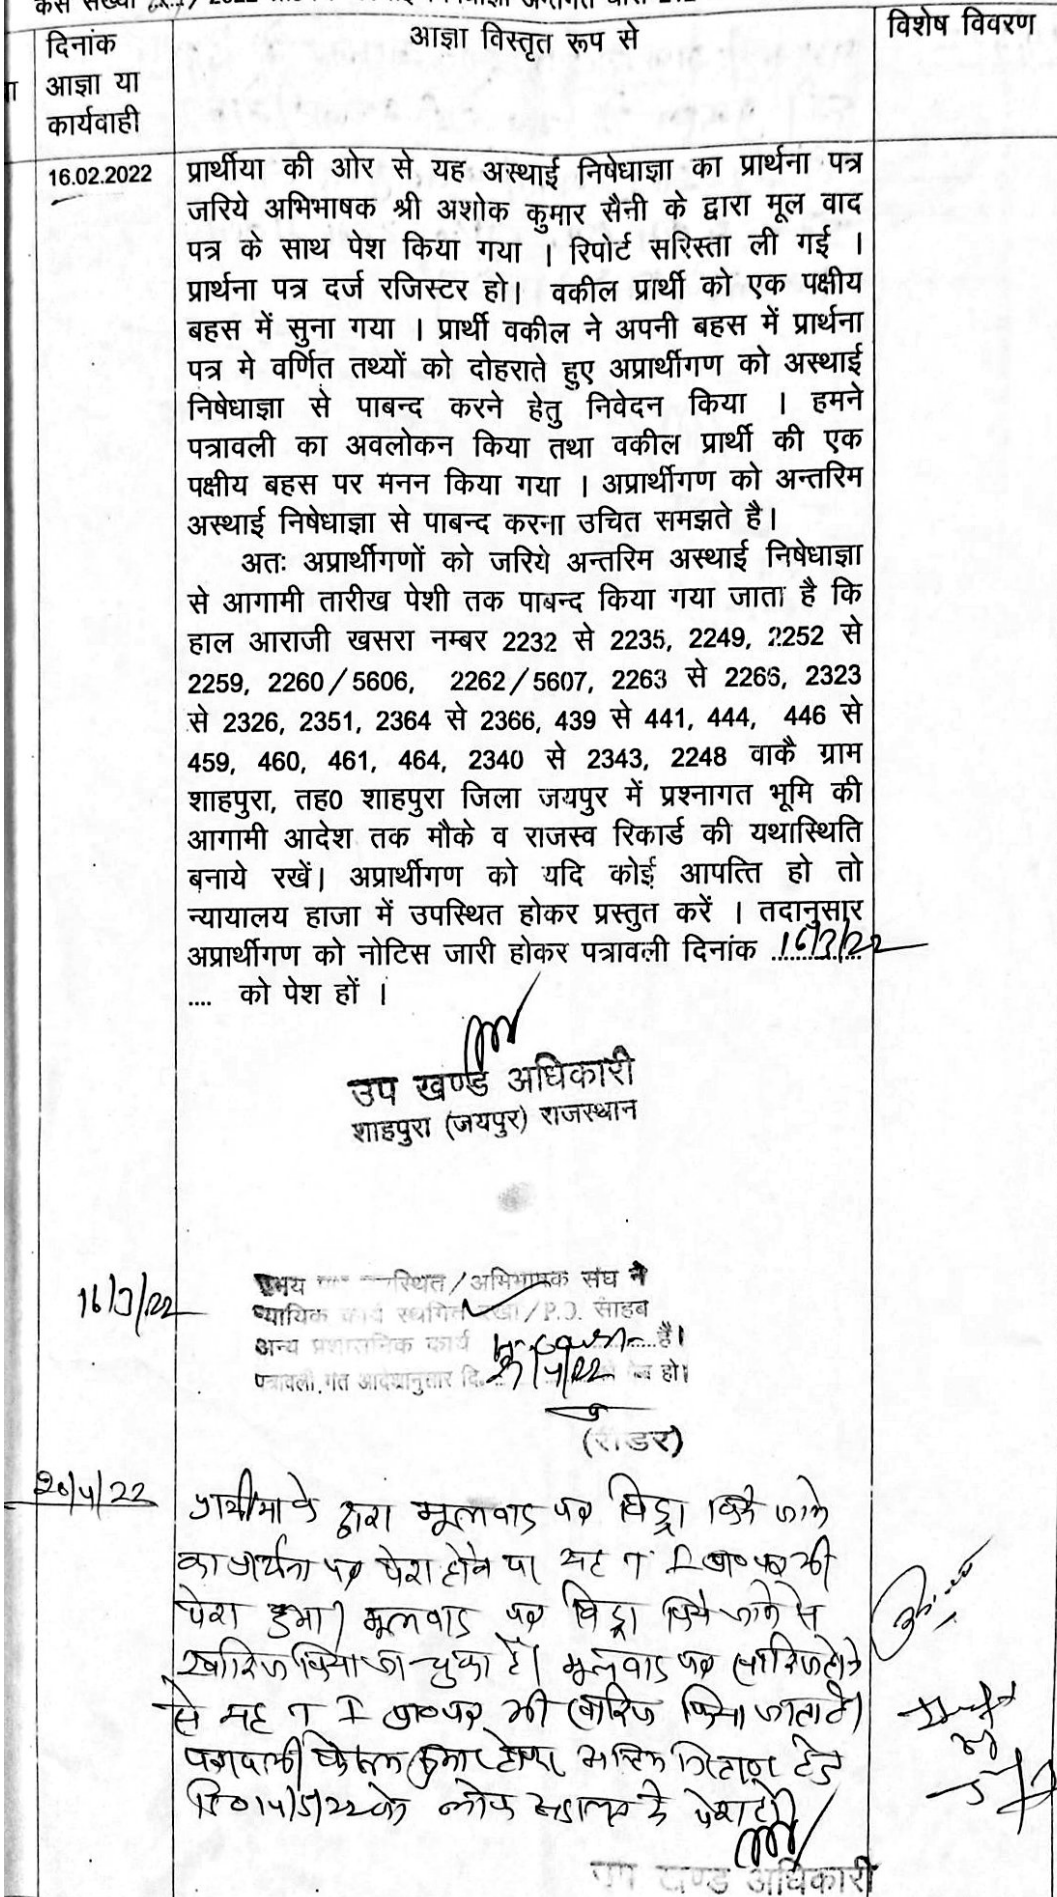 दिनांक
आज्ञा या
कार्यवाही
आज्ञा विस्तृत रूप से
विशेष विवरण
16.02.2022
प्रार्थीया की ओर से यह अस्थाई निषेधाज्ञा का प्रार्थना पत्र
जरिये अभिभाषक श्री अशोक कुमार सैनी के द्वारा मूल वाद
पत्र के साथ पेश किया गया । रिपोर्ट सरिस्ता ली गई ।
प्रार्थना पत्र दर्ज रजिस्टर हो। वकील प्रार्थी को एक पक्षीय
बहस में सुना गया । प्रार्थी वकील ने अपनी बहस में प्रार्थना
पत्र मे वर्णित तथ्यों को दोहराते हुए अप्रार्थीगण को अस्थाई
निषेधाज्ञा से पाबन्द करने हेतु निवेदन किया । हमने
पत्रावली का अवलोकन किया तथा वकील प्रार्थी की एक
पक्षीय बहस पर मनन किया गया । अप्रार्थीगण को अन्तरिम
अस्थाई निषेधाज्ञा से पाबन्द करना उचित समझते है।
अतः अप्रार्थीगणों को जरिये अन्तरिम अस्थाई निषेधाज्ञा
से आगामी तारीख पेशी तक पाबन्द किया गया जाता है कि
हाल आराजी खसरा नम्बर 2232 से 2235, 2249, 2252 से
2259, 2260/5606, 2262/5607, 2263 से 2266, 2323
से 2326, 2351, 2364 से 2366, 439 से 441, 444, 446 से
459, 460, 461, 464, 2340 से 2343, 2248 वाकै ग्राम
शाहपुरा, तह0 शाहपुरा जिला जयपुर में प्रश्नागत भूमि की
आगामी आदेश तक मौके व राजस्व रिकार्ड की यथास्थिति
बनाये रखें। अप्रार्थीगण को यदि कोई आपत्ति हो तो
न्यायालय हाजा में उपस्थित होकर प्रस्तुत करें । तदानुसार
अप्रार्थीगण को नोटिस जारी होकर पत्रावली दिनांक 16/3/22
.... को पेश हों ।
उप खण्ड अधिकारी
शाहपुरा (जयपुर) राजस्थान
16/3/22
स्थित/अभिभाषक संघ ने
न्यायिक कार्य स्थगित रखा/P.O. साहब
अन्य प्रशासनिक कार्य है।
पत्रावली गत आदेशानुसार दि. हो।
(रीडर)
20/4/22
प्रार्थीया के द्वारा मूलवाद पत्र विड्रा किये जाने
का प्रार्थना पत्र पेश होने पर यह
पेश हुआ। मूलवाद पत्र विड्रा किये जाने से
खारिज किया जा चुका है। मूलवाद पत्र खारिज होने
से यह भी खारिज किया जाता है।
पत्रावली
पेश हो।
उप खण्ड अधिकारी